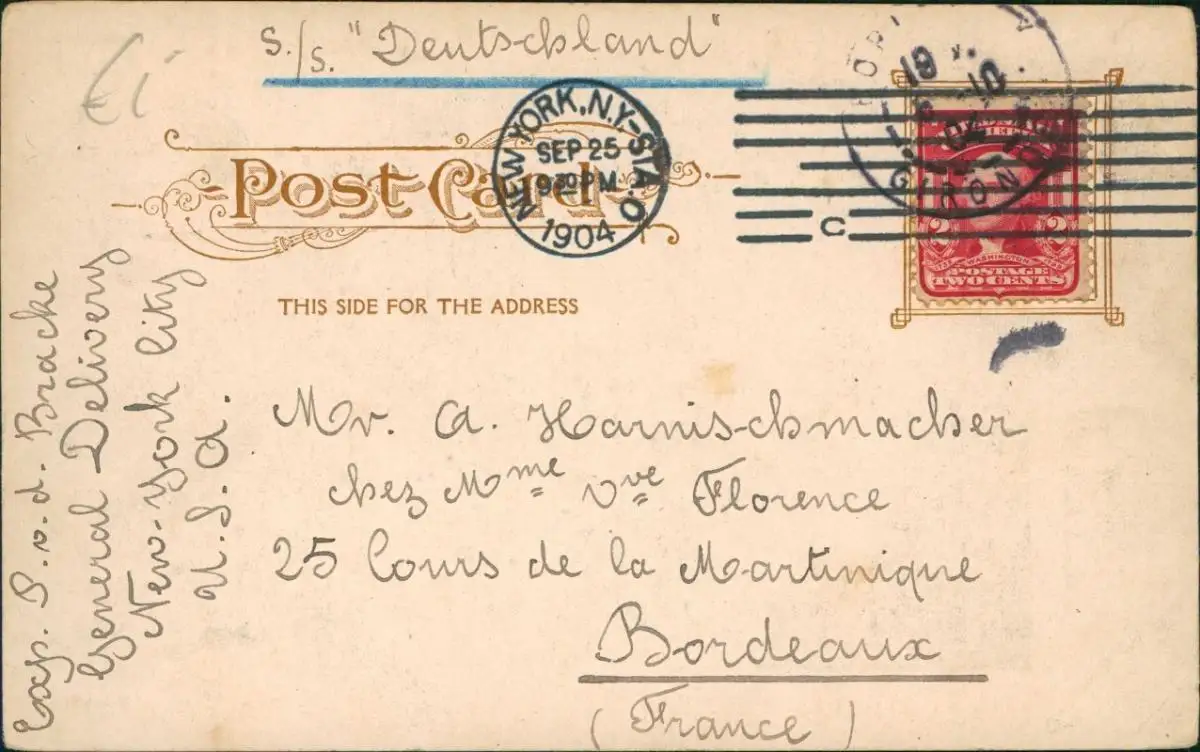 s./s. "Deutschland"
Post Card
NEW YORK, N.Y-STA.O
SEP 25
9 30 PM
1904
C
GIRONDE
THIS SIDE FOR THE ADDRESS
2 2
WASHINGTON
POSTAGE
TWO CENTS
Mr. A. Harnischmacher
chez Mme Vve Florence
25 Cours de la Martinique
Bordeaux
(France)
Exp. P. v. d. Bracke
General Delivery
New-York City
U.S.A.